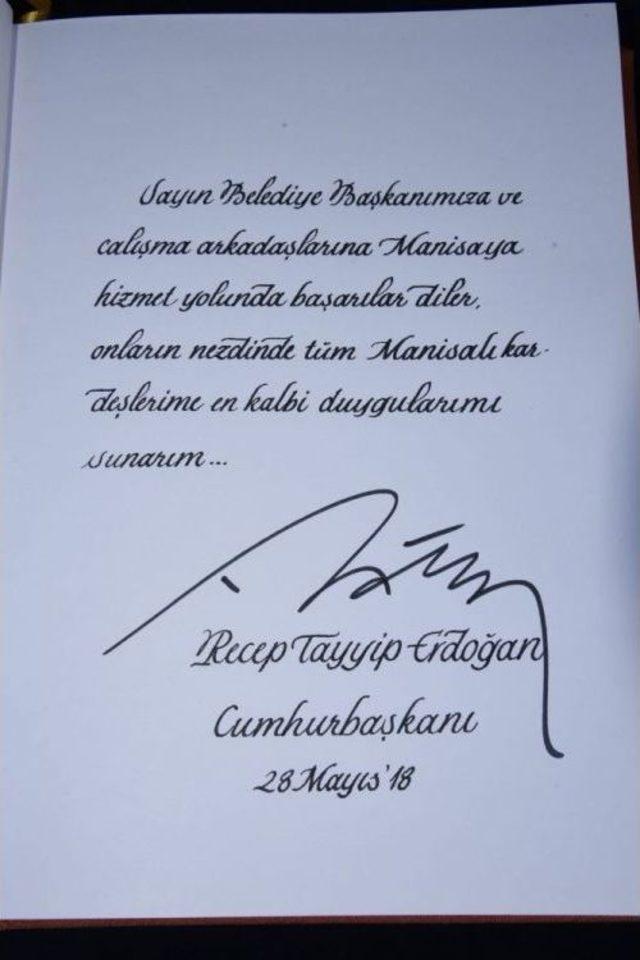 Sayın Belediye Başkanımıza ve
calışma arkadaşlarına Manisaya
hizmet yolunda başarılar diler,
onların nezdinde tüm Manisalı kar-
deşlerime en kalbi duygularımı
sunarım...
Recep Tayyip Erdoğan
Cumhurbaşkanı
28 Mayıs'18